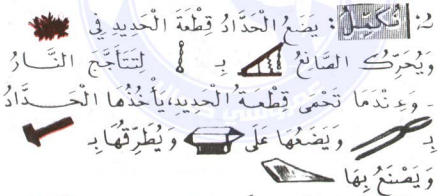 2: نُكَمِّلُ : يَضَعُ الْحَدَّادُ قِطْعَةَ الْحَدِيدِ فِي
وَيُحَرِّكُ الصَّانِعُ بِـ لِتَتَأَجَّجَ النَّارُ
- وَعِنْدَمَا تَحْمَى قِطْعَةُ الْحَدِيدِ، يَأْخُذُهَا الْحَدَّادُ
بِـ وَيَضَعُهَا عَلَى وَيُطَرِّقُهَا بِـ
وَيَصْنَعُ بِهَا